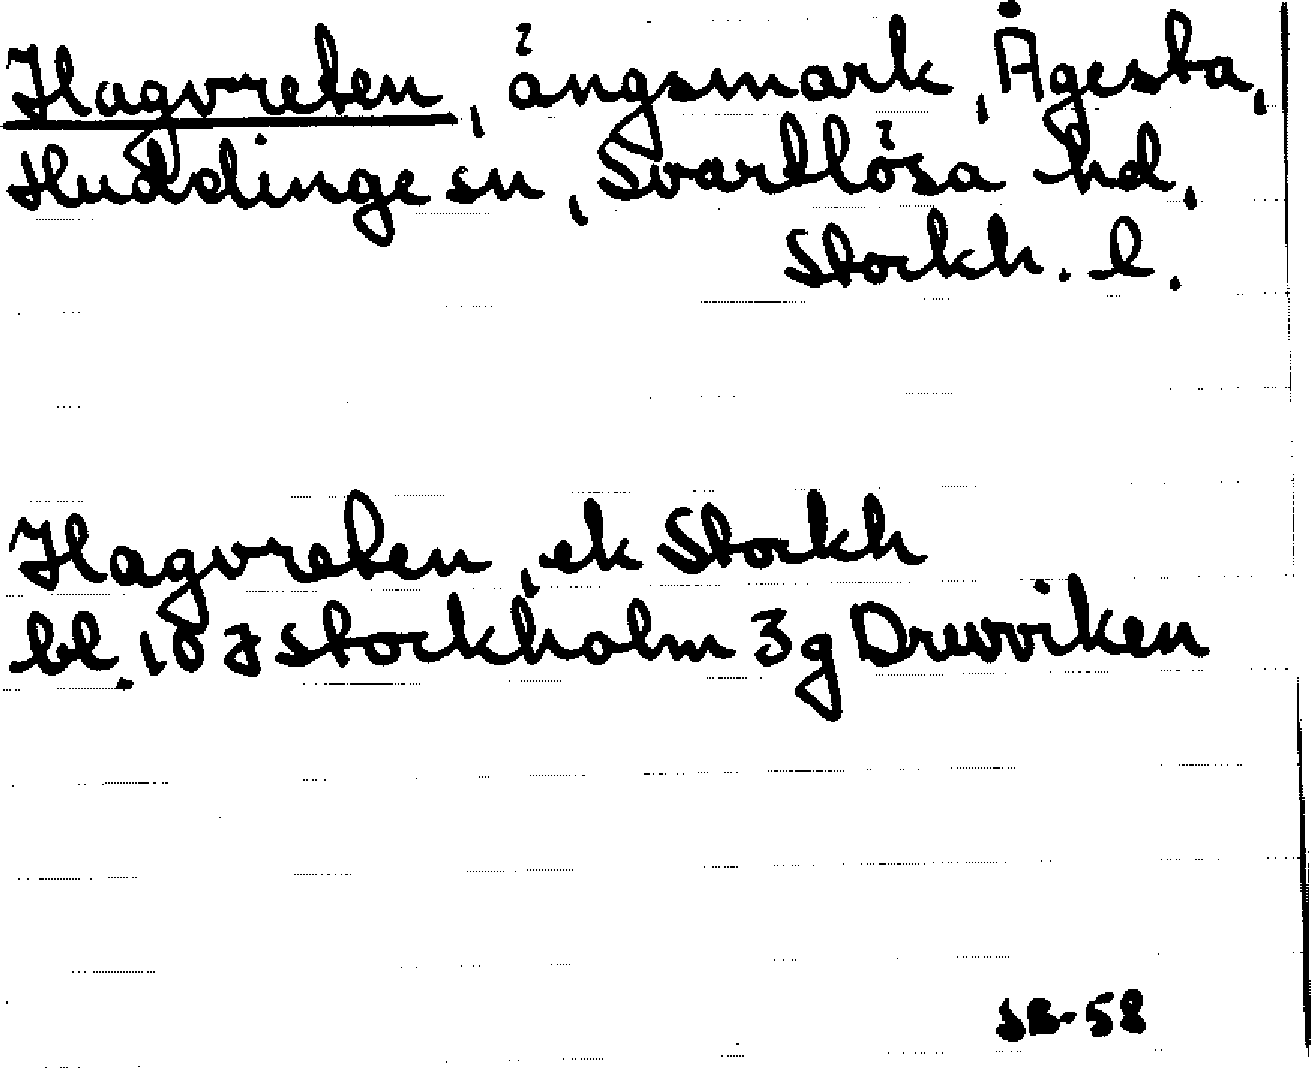 Hagvreten, ängsmark, Ågesta,
Huddinge sn, Svartlösa hd,
Stockh. l.
Hagvreten, ek Stockh
bl. 10 J Stockholm 3g Drevviken